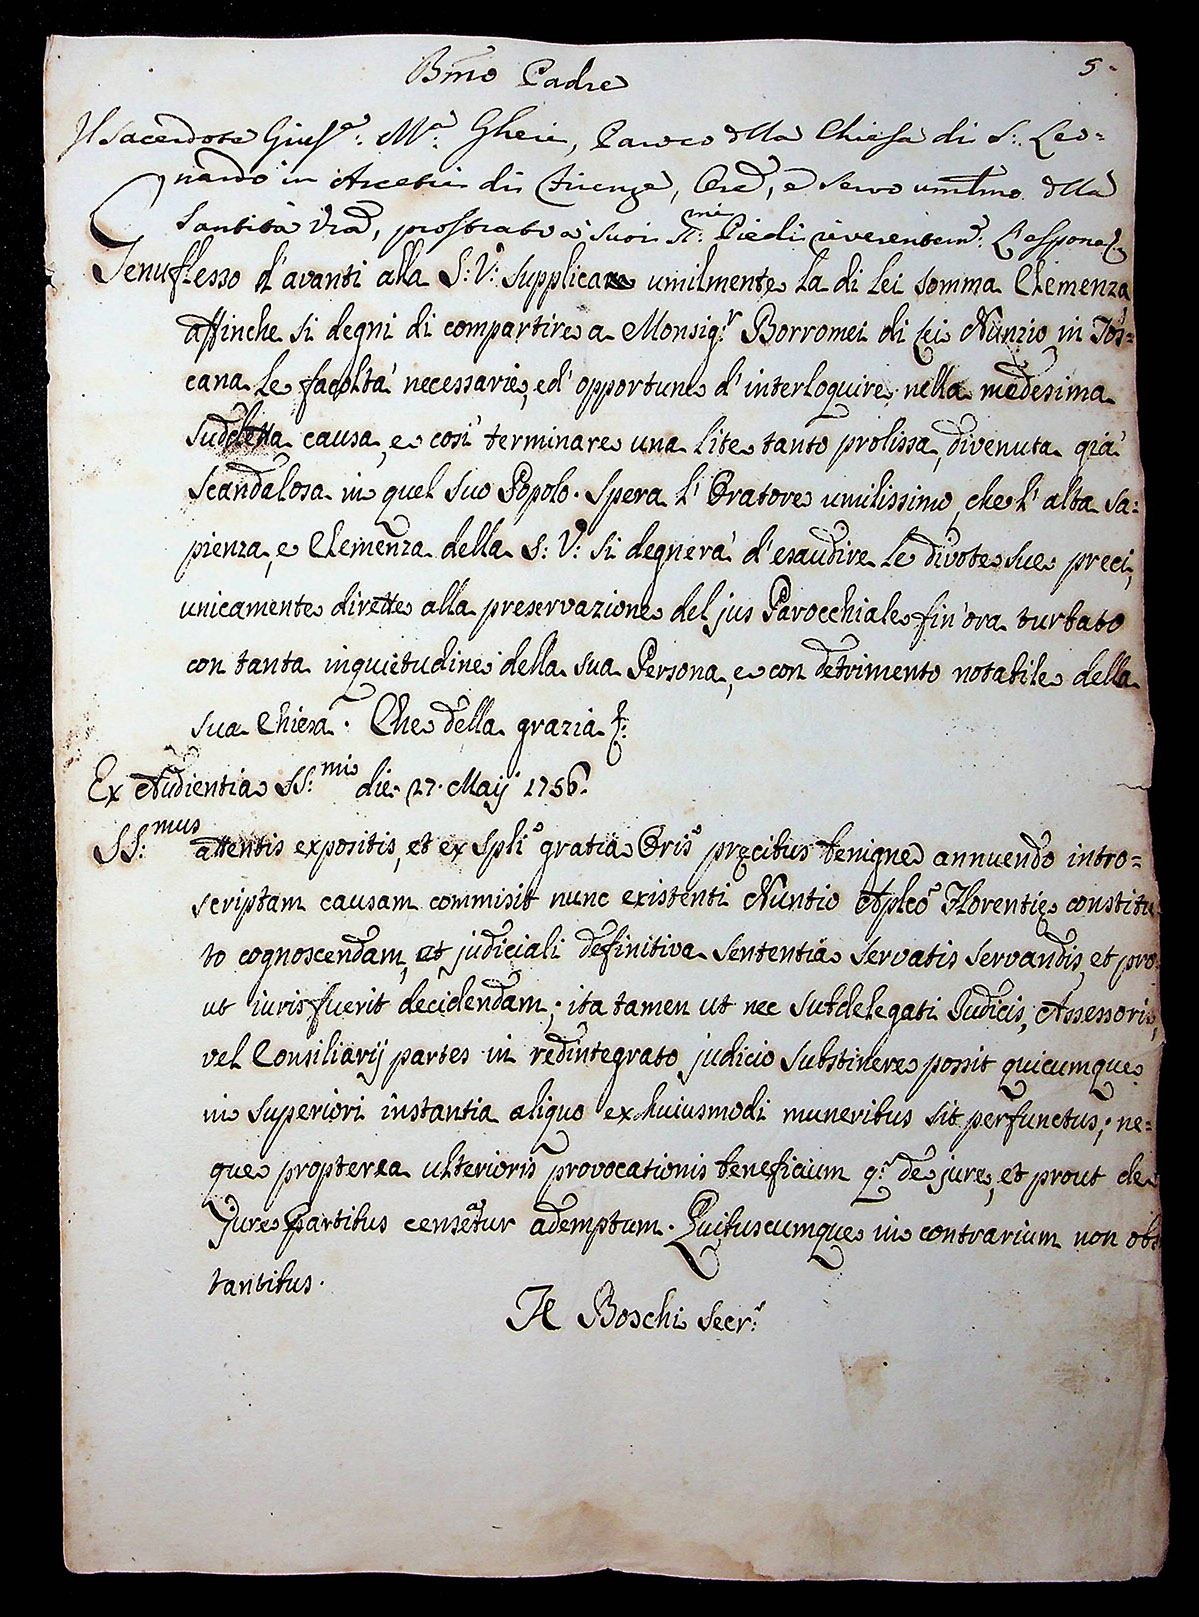 Bmo Padre
5.
Il Sacerdote Giuse. Ma. Gheri, Paroco della Chiesa di S. Leo=
nardo in Arcetri di Firenze, Ored, e Servo umilmo della
Santità Vra, prostrato a' suoi SSmi. Piedi riverentem. L'espone
Genuflesso d'avanti alla S: V: supplica umilmente la di Lei somma Clemenza
affinche si degni di compartire a Monsig.r Borromei di Lei Nunzio in Tos=
cana le facoltà necessarie, ed' opportune d'interloquire nella medesima
sudetta causa, e così terminare una lite tanto prolissa, divenuta già
scandalosa in quel suo Popolo. Spera l'Oratore umilissimo, che l'alta sa=
pienza, e Clemenza della S: V: si degnerà d'esaudire le divote sue preci,
unicamente dirette alla preservazione del jus Parocchiale fin'ora turbato
con tanta inquietudine della sua Persona, e con detrimento notabile della
sua Chiesa. Che della grazia &:
Ex Audientia SS:mi die. 27. Maij 1756.
SS:mus attentis expositis, et ex spli gratia Oris precibus benigne annuendo intro=
scriptam causam commisit nunc existenti Nuntio Aplco Florentie constitu
to cognoscendam, et judiciali definitiva sententia servatis servandis, et pro
ut iuris fuerit decidendam; ita tamen ut nec subdelegati Judicis, Assessoris,
vel Consiliarij partes in redintegrato judicio substinere possit quicumque
in superiori instantia aliquo ex huiusmodi muneribus sit perfunctus; ne=
que propterea ulterioris provocationis beneficium q.r de jure, et prout de
Jure Partibus censeatur ademptum. Quibuscumque in contrarium non obs
tantibus.
H Boschi Secr:s